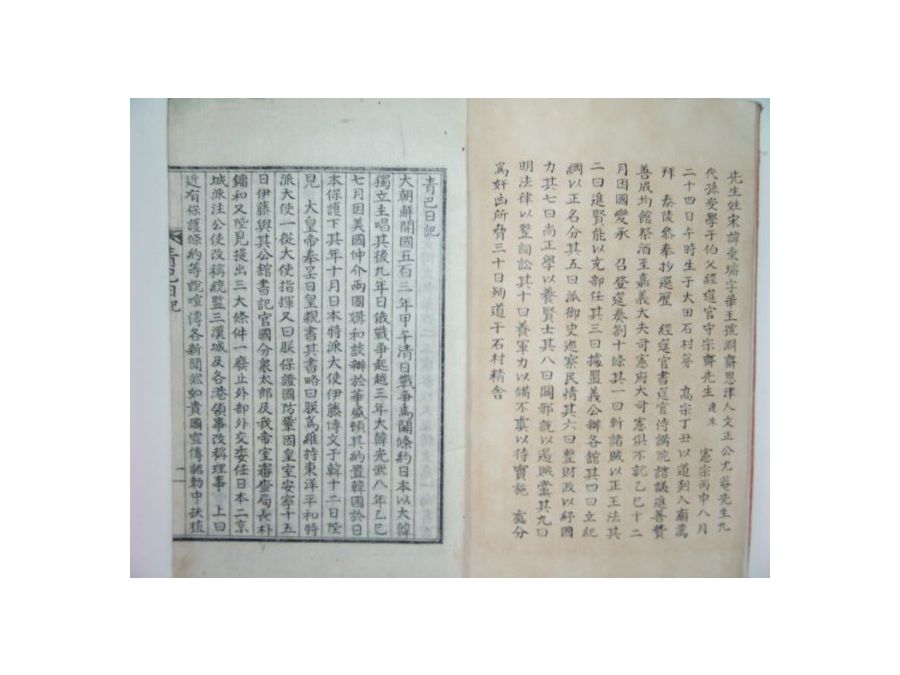 先生姓宋諱秉璿字華玉號淵齋恩津人文正公尤菴先生九
代孫受學于伯父經筵官守宗齋先生達洙 憲宗丙申八月
二十四日午時生于大田石村第 高宗丁丑以道到入廟薦
拜 泰陵參奉抄選歷 經筵官書筵官侍講院諮議進善贊
善成均館祭酒至嘉義大夫司憲府大司憲俱不就乙巳十二
月因國變承 召登筵奏劄十條其一曰斬諸賊以正王法其
二曰進賢能以充部任其三曰據盟義公辦各館其四曰立紀
綱以正名分其五曰派御史巡察民情其六曰整財政以紓國
力其七曰尚正學以養賢士其八曰闢邪說以遏賊黨其九曰
明法律以整詞訟其十曰養軍力以備不虞以待實施 處分
爲奸凶所脅三十日殉道于石村精舍
青巴日記
大朝鮮開國五百三年甲午清日戰爭馬關條約日本以大韓
獨立主唱其後九年日俄戰爭起越三年大韓光武八年乙巳
七月因美國仲介兩國媾和談辦於華盛頓其約置韓國於日
本保護下其年十月日本特派大使伊藤博文于韓十二日陛
見 大皇帝奉呈日皇親書其書略曰朕爲維持東洋平和特
派大使一從大使指揮又曰朕保證國防鞏固皇室安寧十五
日伊藤與其公館書記官國分象太郎及我帝室審査局長朴
鏞和又陛見提出三大條件一廢止外部外交委任日本二京
城派注公使改稱統監三漢城及各港領事改稱理事 上曰
近有保護條約等說喧傳各新聞然如貴國宣傳詔勅中扶植
青巴日記
一